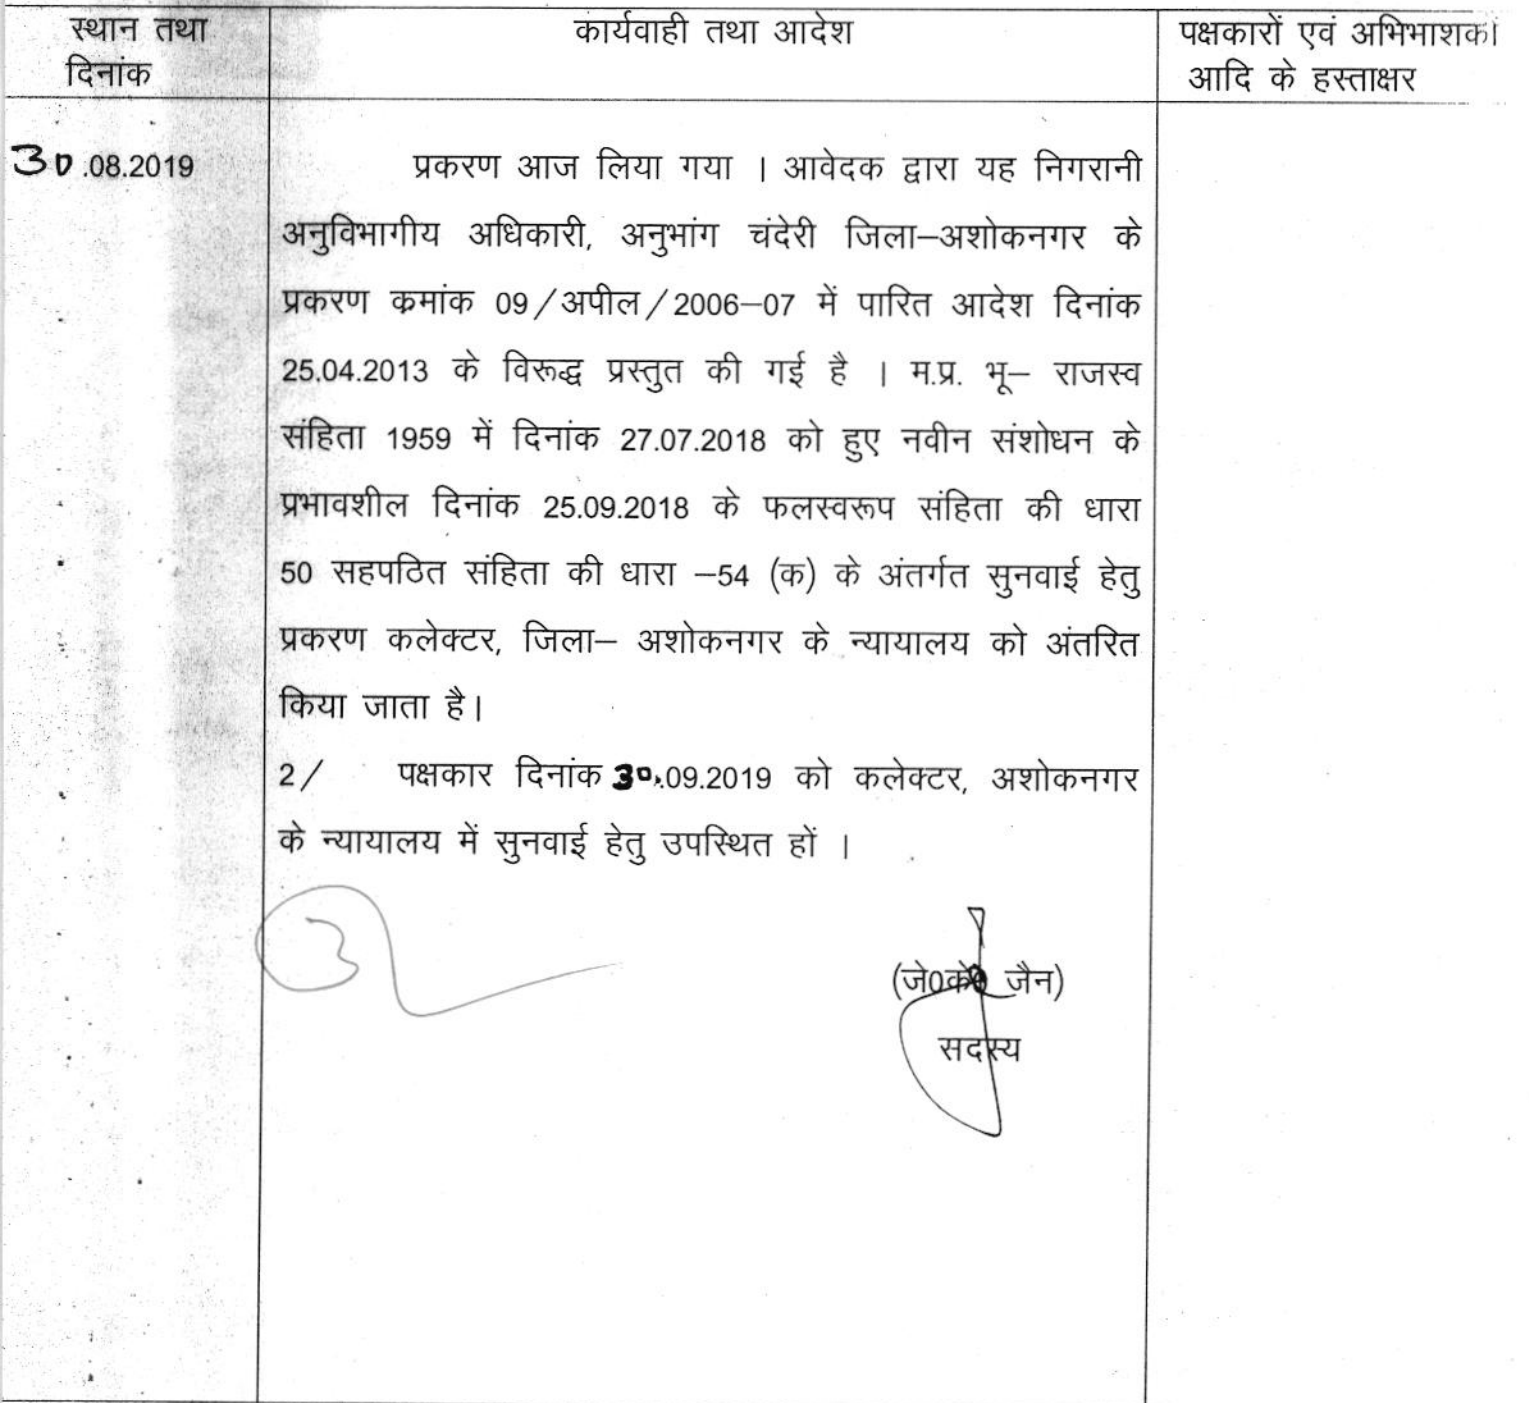 स्थान तथा
दिनांक
कार्यवाही तथा आदेश
पक्षकारों एवं अभिभाशकों
आदि के हस्ताक्षर
30.08.2019
प्रकरण आज लिया गया । आवेदक द्वारा यह निगरानी
अनुविभागीय अधिकारी, अनुभांग चंदेरी जिला–अशोकनगर के
प्रकरण क्रमांक 09/अपील/2006–07 में पारित आदेश दिनांक
25.04.2013 के विरूद्ध प्रस्तुत की गई है । म.प्र. भू– राजस्व
संहिता 1959 में दिनांक 27.07.2018 को हुए नवीन संशोधन के
प्रभावशील दिनांक 25.09.2018 के फलस्वरूप संहिता की धारा
50 सहपठित संहिता की धारा –54 (क) के अंतर्गत सुनवाई हेतु
प्रकरण कलेक्टर, जिला– अशोकनगर के न्यायालय को अंतरित
किया जाता है।
2/ पक्षकार दिनांक 30.09.2019 को कलेक्टर, अशोकनगर
के न्यायालय में सुनवाई हेतु उपस्थित हों ।
(जे0के0 जैन)
सदस्य